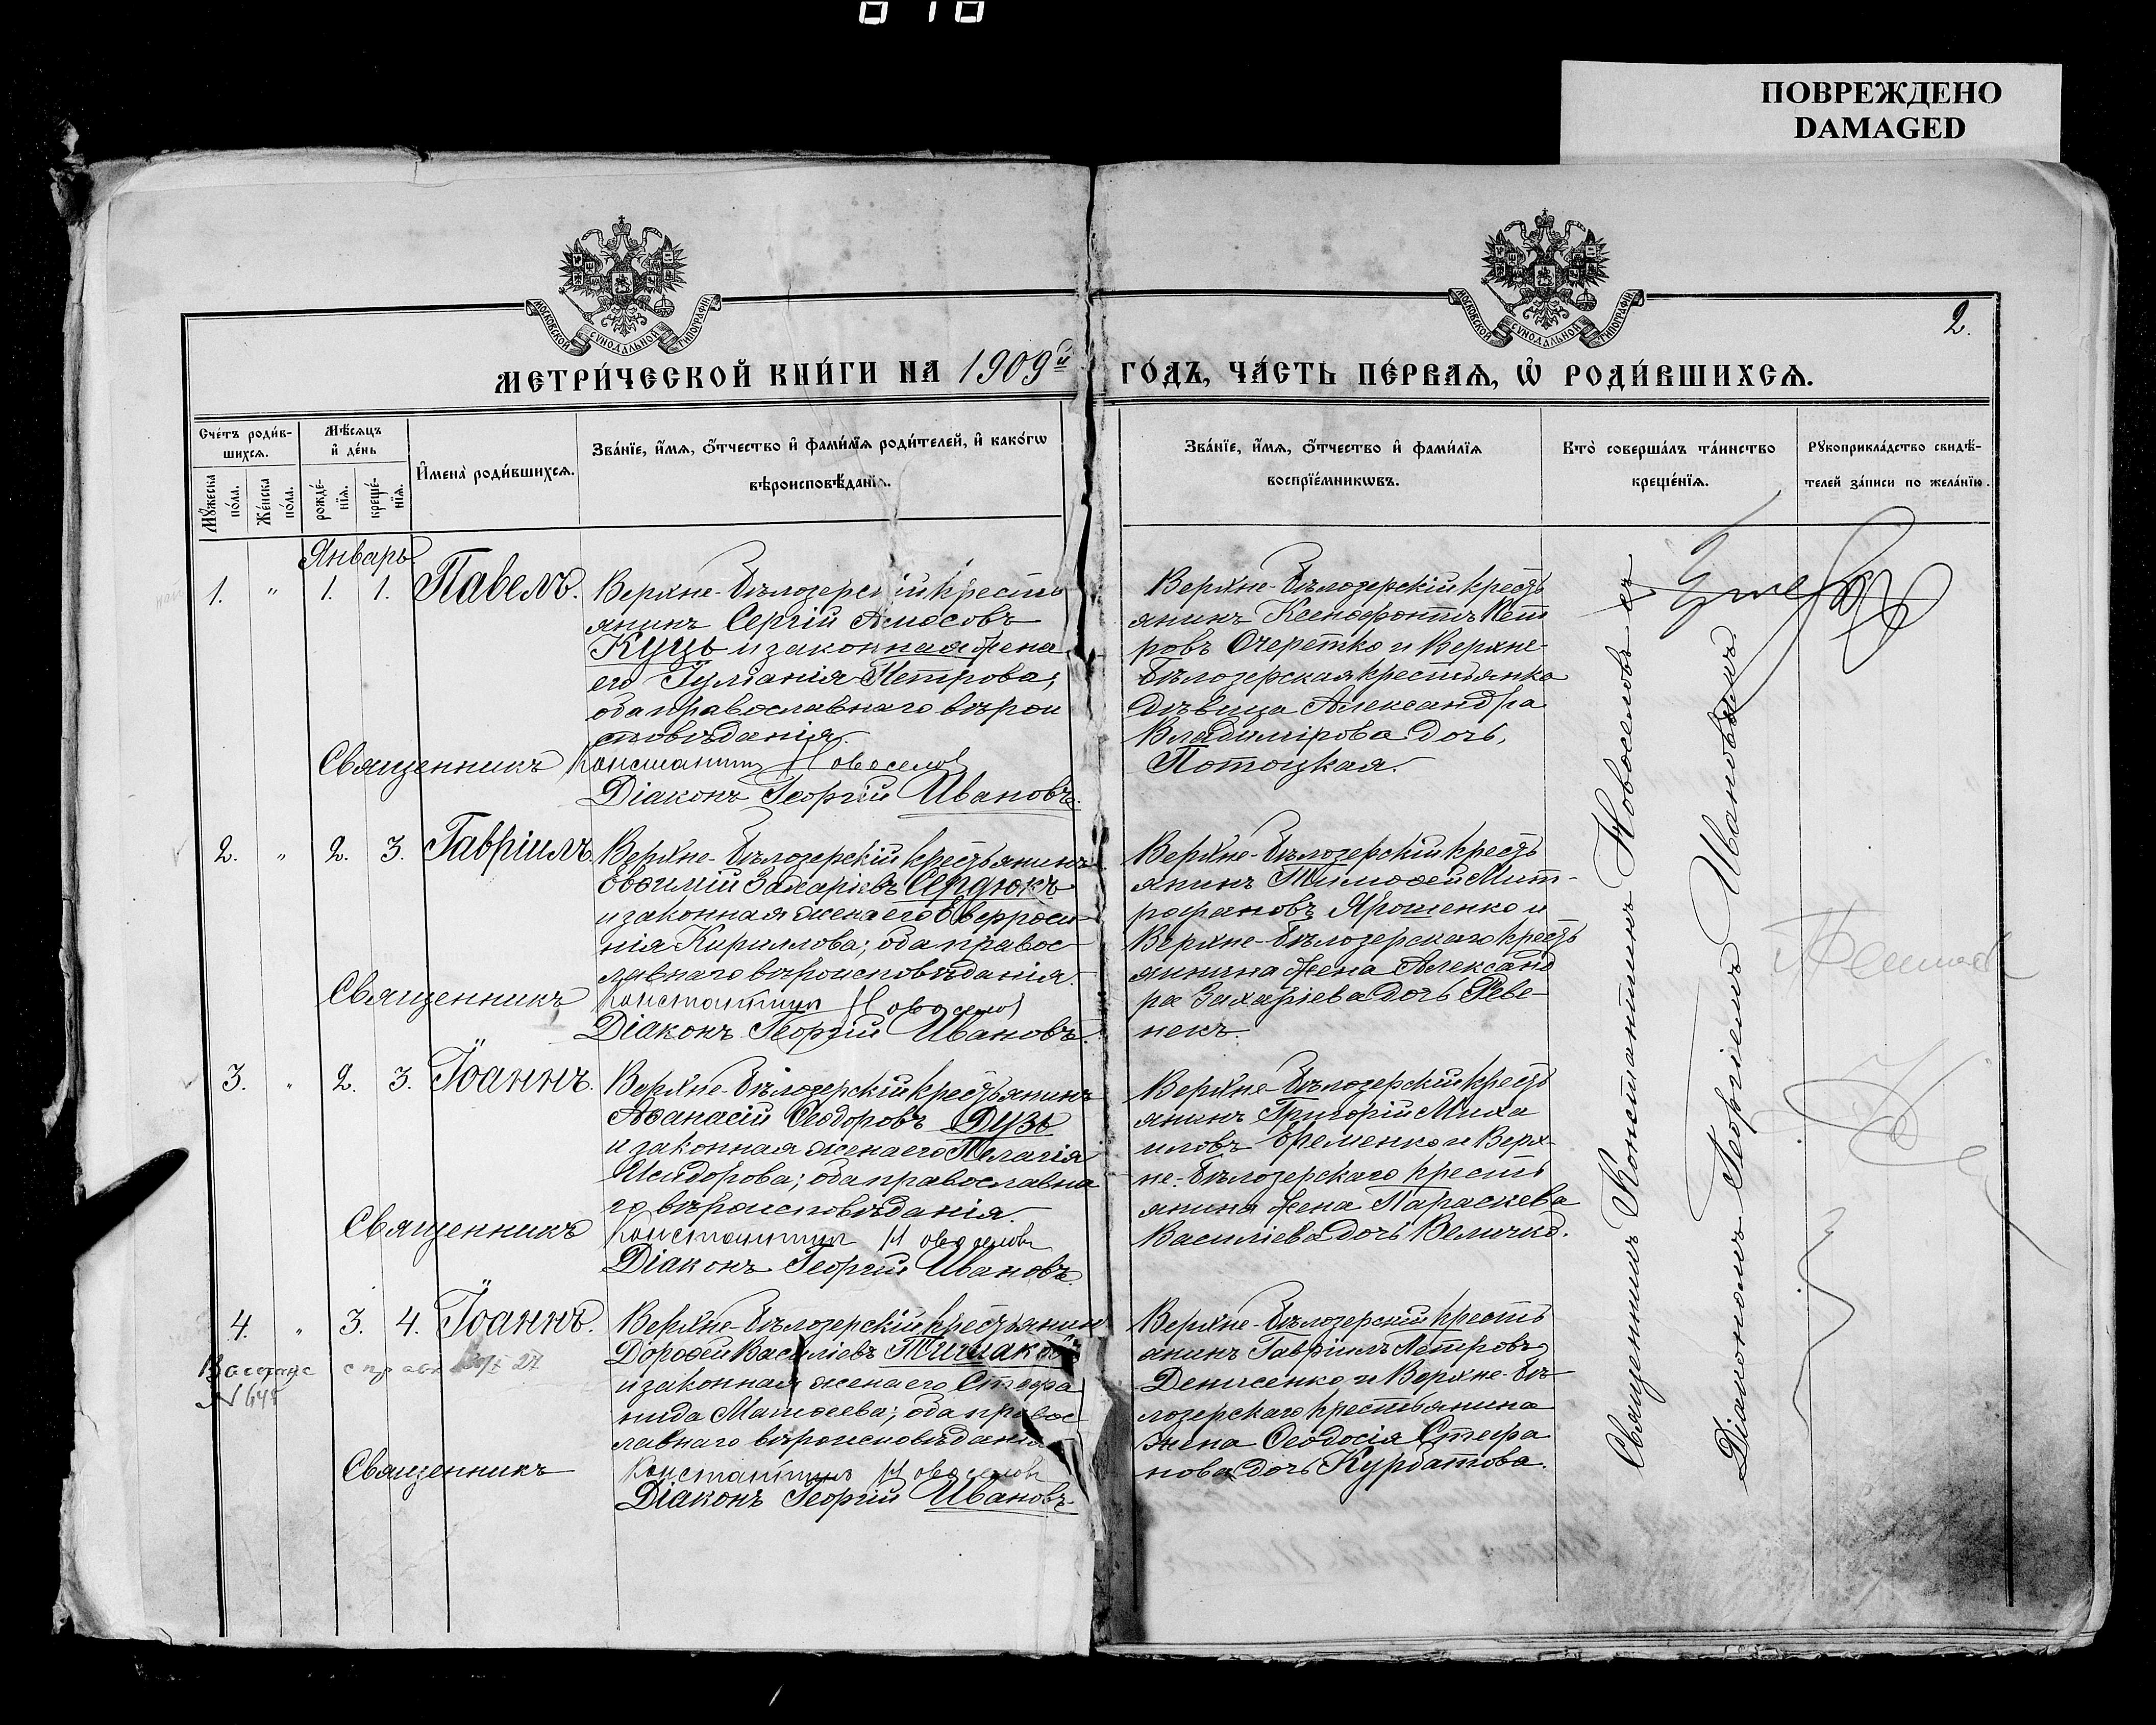 ПОВРЕЖДЕНО
DAMAGED
МОСКОВСКОЙ СѴНОДАЛЬНОЙ ТИПОГРАФІИ
МОСКОВСКОЙ СѴНОДАЛЬНОЙ ТИПОГРАФІИ
2.
МЕТРИ́ЧЕСКОЙ КНИ́ГИ НА 1909й ГО́ДЪ, ЧА́СТЬ ПЕ́РВАЯ, Ѡ РОДИ́ВШИХСЯ.
Сче́тъ роди́в-
шихся.
Мѣ́сяцъ
и де́нь
Му́жеска
по́ла.
Же́нска
по́ла.
рожде́-
нія.
креще́-
нія.
Имена̀ роди́вшихся.
Зва́ніе, и́мя, о́тчество и фами́лія роди́телей, и како́гѡ
вѣроисповѣ́данія.
Зва́ніе, и́мя, о́тчество и фами́лія
воспріе́мникѡвъ.
Кто̀ соверша́лъ та́инство
креще́нія.
Рукоприкла́дство свидѣ́-
телей за́писи по жела́нію.
Январь
1. " 1. 1. Павелъ.
Верхне-Бѣлозерскій кресть
янинъ Сергій Амосовъ
Куць и законная жена
его Іуліанія Петрова;
оба православнаго вѣрои
сповѣданія.
Священникъ Константинъ Новоселов
Діаконъ Георгій Ивановъ.
Верхне-Бѣлозерскій кресть
янинъ Ксенофонтъ Пет
ровъ Очеретко и Верхне-
Бѣлозерская крестьянка
дѣвица Александра
Владимірова дочь,
Потоцкая.
2. " 2. 3. Гавріилъ.
Верхне-Бѣлозерскій крестьянинъ
Евѳимій Захаріевъ Сердюкъ
и законная жена его Евфроси
нія Кириллова; оба правос
лавнаго вѣроисповѣданія.
Священникъ Константинъ Новоселов
Діаконъ Георгій Ивановъ.
Верхне-Бѣлозерскій кресть
янинъ Тимоѳей Мит-
рофановъ Ярошенко и
Верхне-Бѣлозерскаго кресть
янина жена Александ
ра Захаріева дочь Реве-
некъ.
3. " 2. 3. Іоаннъ.
Верхне-Бѣлозерскій крестьянинъ
Аѳанасій Ѳеодоровъ Дузь
и законная жена его Пелагія
Исидорова; оба православна
го вѣроисповѣданія.
Священникъ Константинъ Новоселовъ
Діаконъ Георгій Ивановъ.
Верхне-Бѣлозерскій кресть
янинъ Григорій Миха
иловъ Еременко и Верх-
не-Бѣлозерскаго кресть
янина жена Параскева
Василіева дочь Величко.
4. " 3. 4. Іоаннъ.
Верхне-Бѣлозерскій крестьянин
Дороѳей Василіевъ
и законная жена его Стефа
нида Матѳеева; оба правос
лавнаго вѣроисповѣданія
Священникъ Константинъ Новоселовъ
Діаконъ Георгій Ивановъ.
Верхне-Бѣлозерскій кресть
янинъ Гавріилъ Петровъ
Денисенко и Верхне-Бѣ-
лозерскаго крестьянина
жена Ѳеодосія Стефа
нова дочь Курбатова.
Священникъ Константинъ Новоселовъ съ
Діакономъ Георгіемъ Ивановымъ